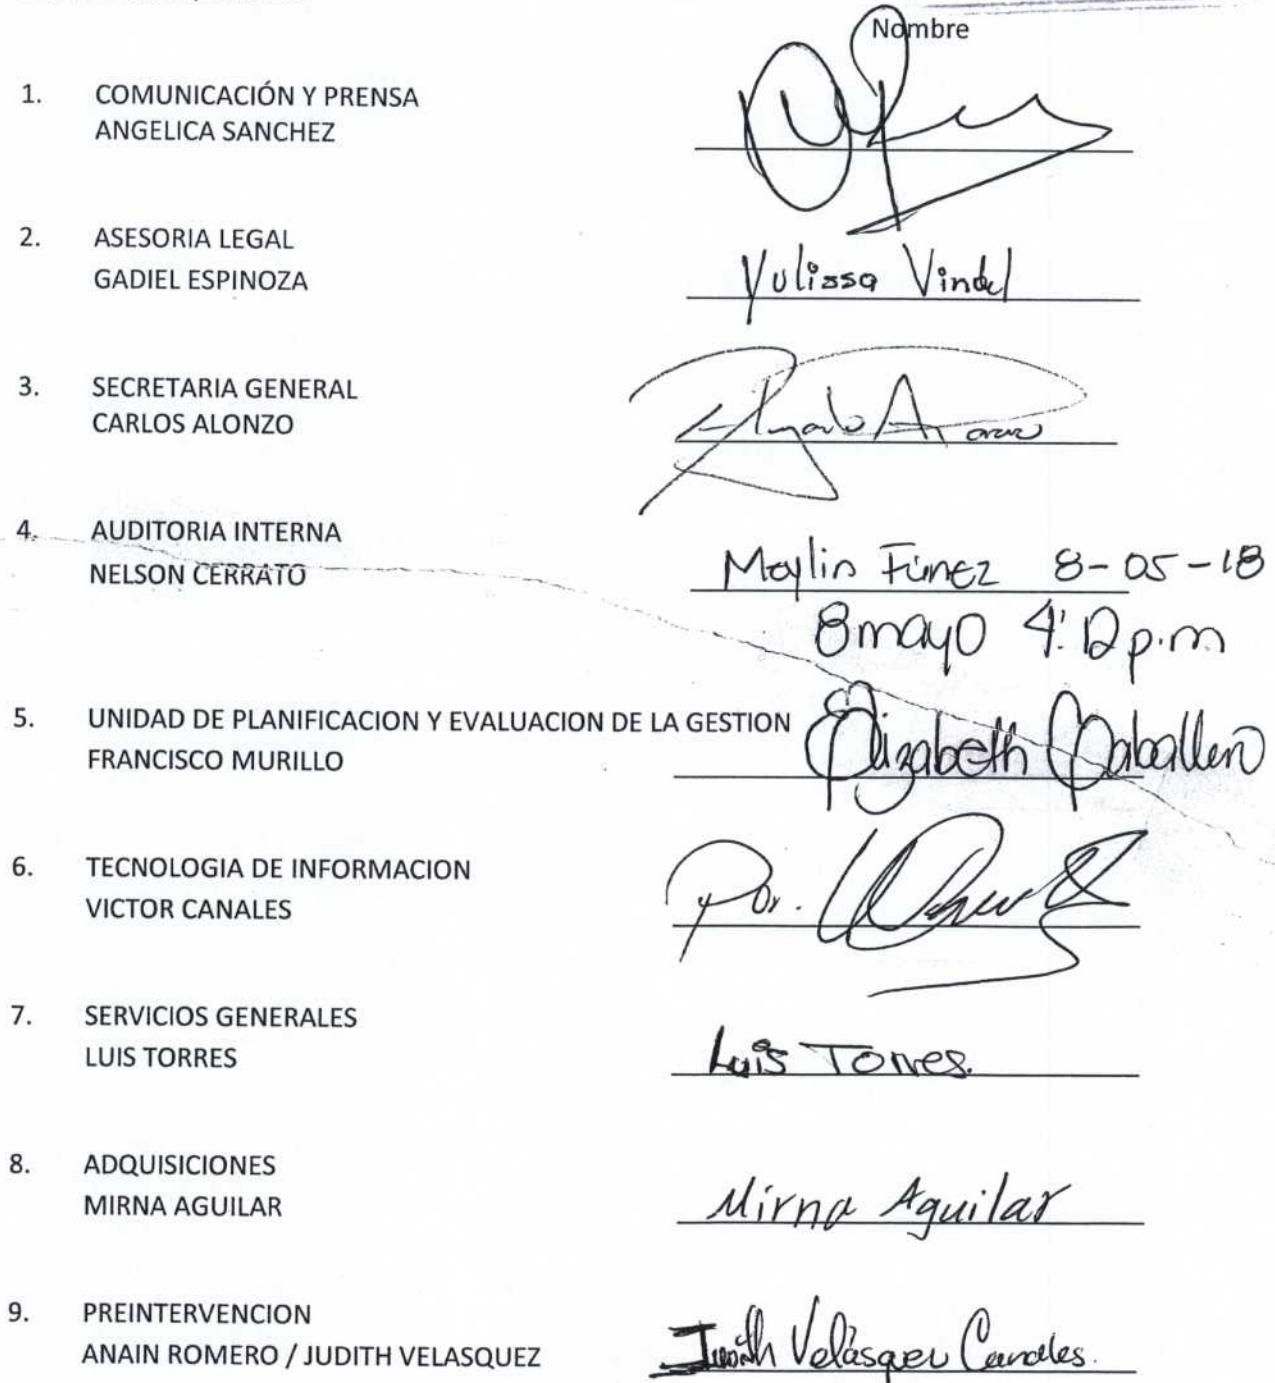 Nombre
1. COMUNICACIÓN Y PRENSA
ANGELICA SANCHEZ
2. ASESORIA LEGAL
GADIEL ESPINOZA
Yulissa Vindel
3. SECRETARIA GENERAL
CARLOS ALONZO
4. AUDITORIA INTERNA
NELSON CERRATO
Maylin Fúnez 8-05-18
8 mayo 4:12 p.m
5. UNIDAD DE PLANIFICACION Y EVALUACION DE LA GESTION
FRANCISCO MURILLO
Elizabeth Caballero
6. TECNOLOGIA DE INFORMACION
VICTOR CANALES
Por.
7. SERVICIOS GENERALES
LUIS TORRES
Luis Torres.
8. ADQUISICIONES
MIRNA AGUILAR
Mirna Aguilar
9. PREINTERVENCION
ANAIN ROMERO / JUDITH VELASQUEZ
Judith Velásquez Canales.